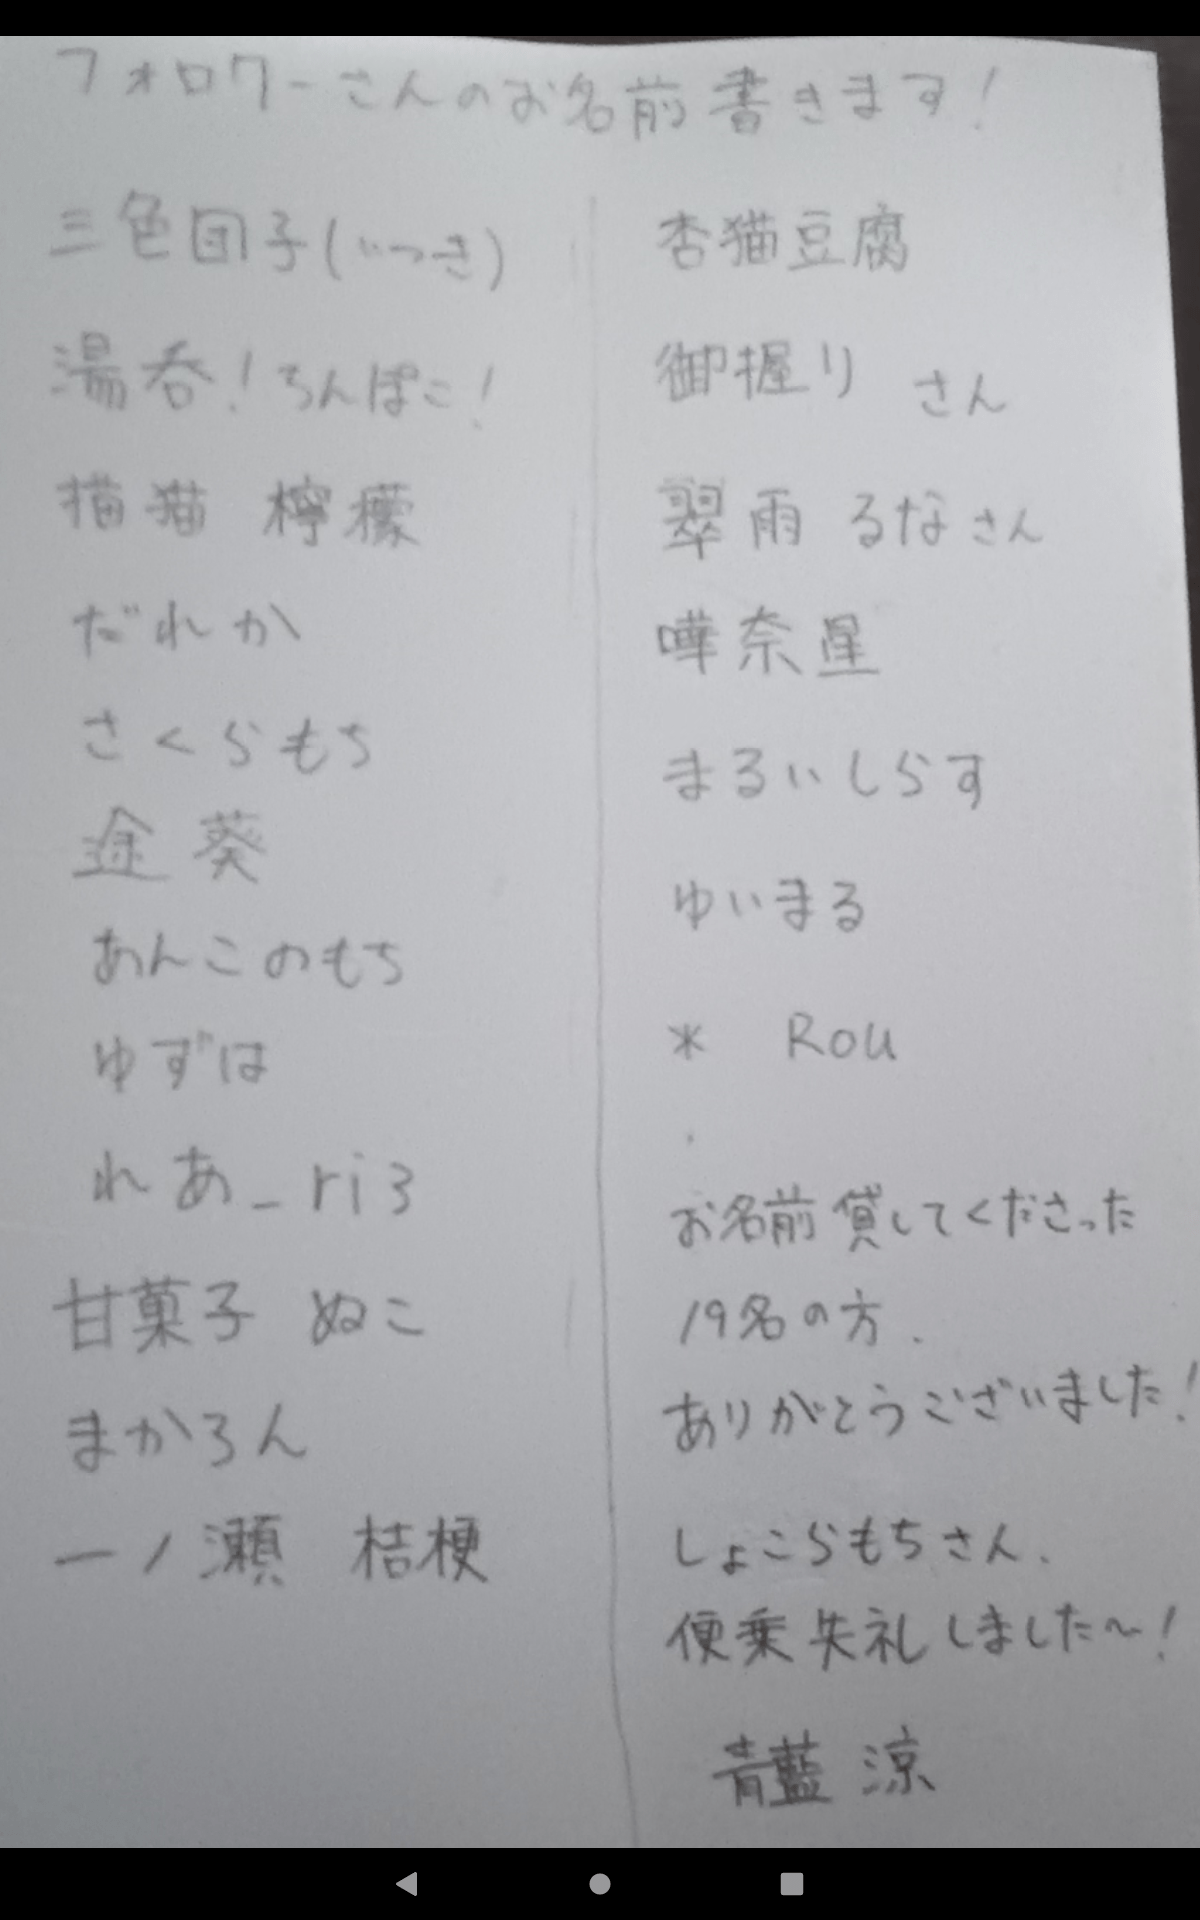 フォロワーさんのお名前書きます!
三色団子(いつき)
湯呑!ろんぱこ!
描猫 檸檬
だれか
さくらもち
途 葵
あんこのもち
ゆずは
れあ_ri3
甘菓子 ぬこ
まかろん
一ノ瀬 桔梗
杏猫豆腐
御握り さん
翠雨 るなさん
嘩奈星
まるいしらす
ゆいまる
* Rou
お名前貸してくださった
19名の方、
ありがとうございました!
しょこらもちさん、
便乗失礼しました〜!
青藍 涼